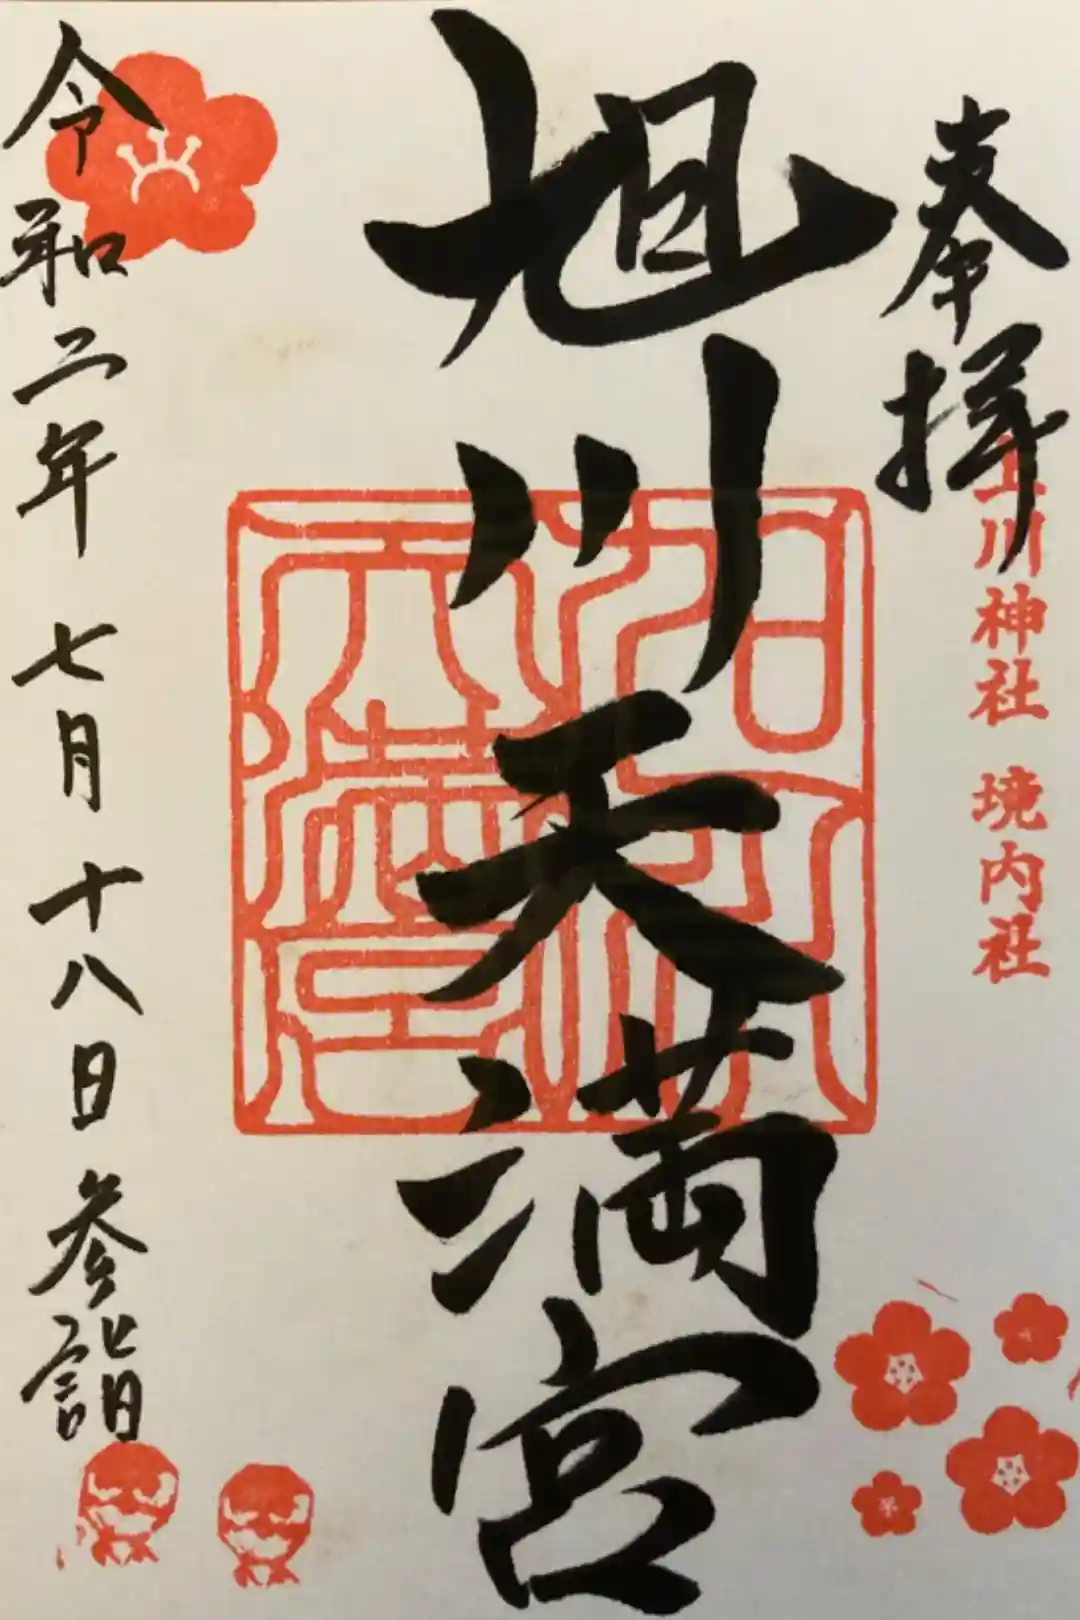 奉拝
上川神社 境内社
旭川天満宮
旭川天満宮
令和二年 七月十八日 参詣